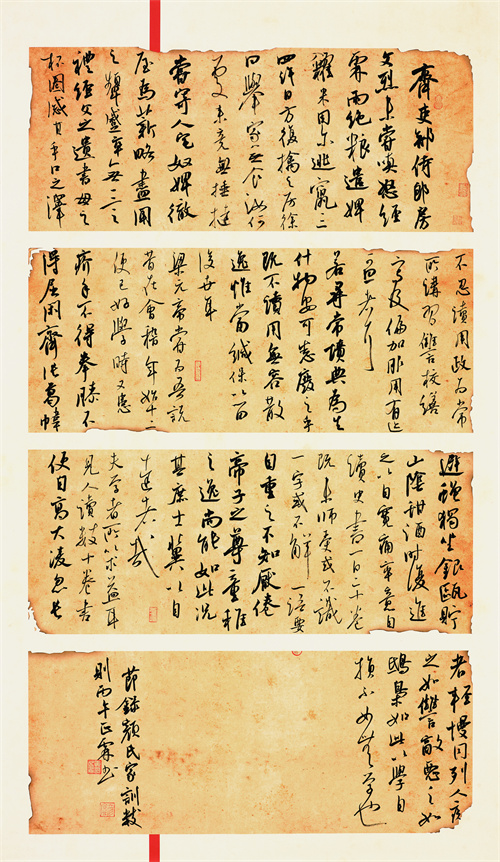 齊吏部侍郎房
文烈未嘗嗔怒經
霖雨絕糧遣婢
糴米因尔逃竄三
四許日方復擒之房徐
曰舉家無食汝何
處來竟無捶撻
嘗寄人宅奴婢徹
屋為薪略盡聞
之顰蹙卒無一言
禮經父之遺書母之
杯圈感其手口之澤
不忍讀用政為常
所講習讎校繕
寫及偏加服用有迹
可思者耳
若尋常墳典為生
什物安可悉廢之乎
既不讀用無容散
逸惟當緘保以留
後世耳
梁元帝嘗為吾說
昔在會稽年始十二
便已好學時又患
疥手不得拳膝不
得屈閑齋張葛幃
避蠅獨坐銀甌貯
山陰甜酒時復進
之以自寬痛率意自
讀史書一日二十卷
既未師受或不識
一字或不解一語要
自重之不知厭倦
帝子之尊童稚
之逸尚能如此況
其庶士冀以自
達者哉
夫學者所以求益耳
見人讀數十卷書
便自高大凌忽長
者輕慢同列人疾
之如讎敵惡之如
鴟梟如此以學自
損不如無學也
節錄顏氏家訓數
則丙午正霖書